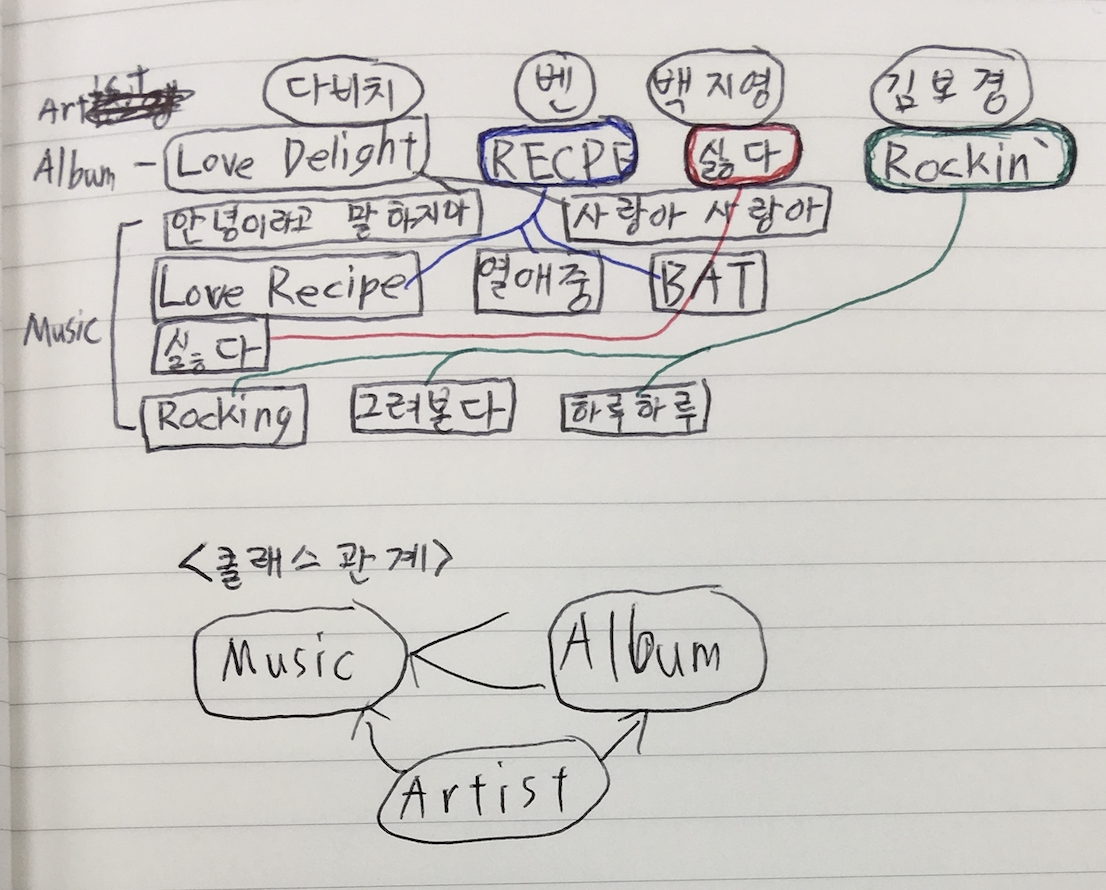 Artist 다비치 벤 백지영 김보경
Album - Love Delight RECPE 싫다 Rockin`
안녕이라고 말하지마 사랑아 사랑아
Love Recipe 열애중 BAT
Music
싫다
Rocking 그려본다 하루하루
<클래스 관계>
Music Album
Artist